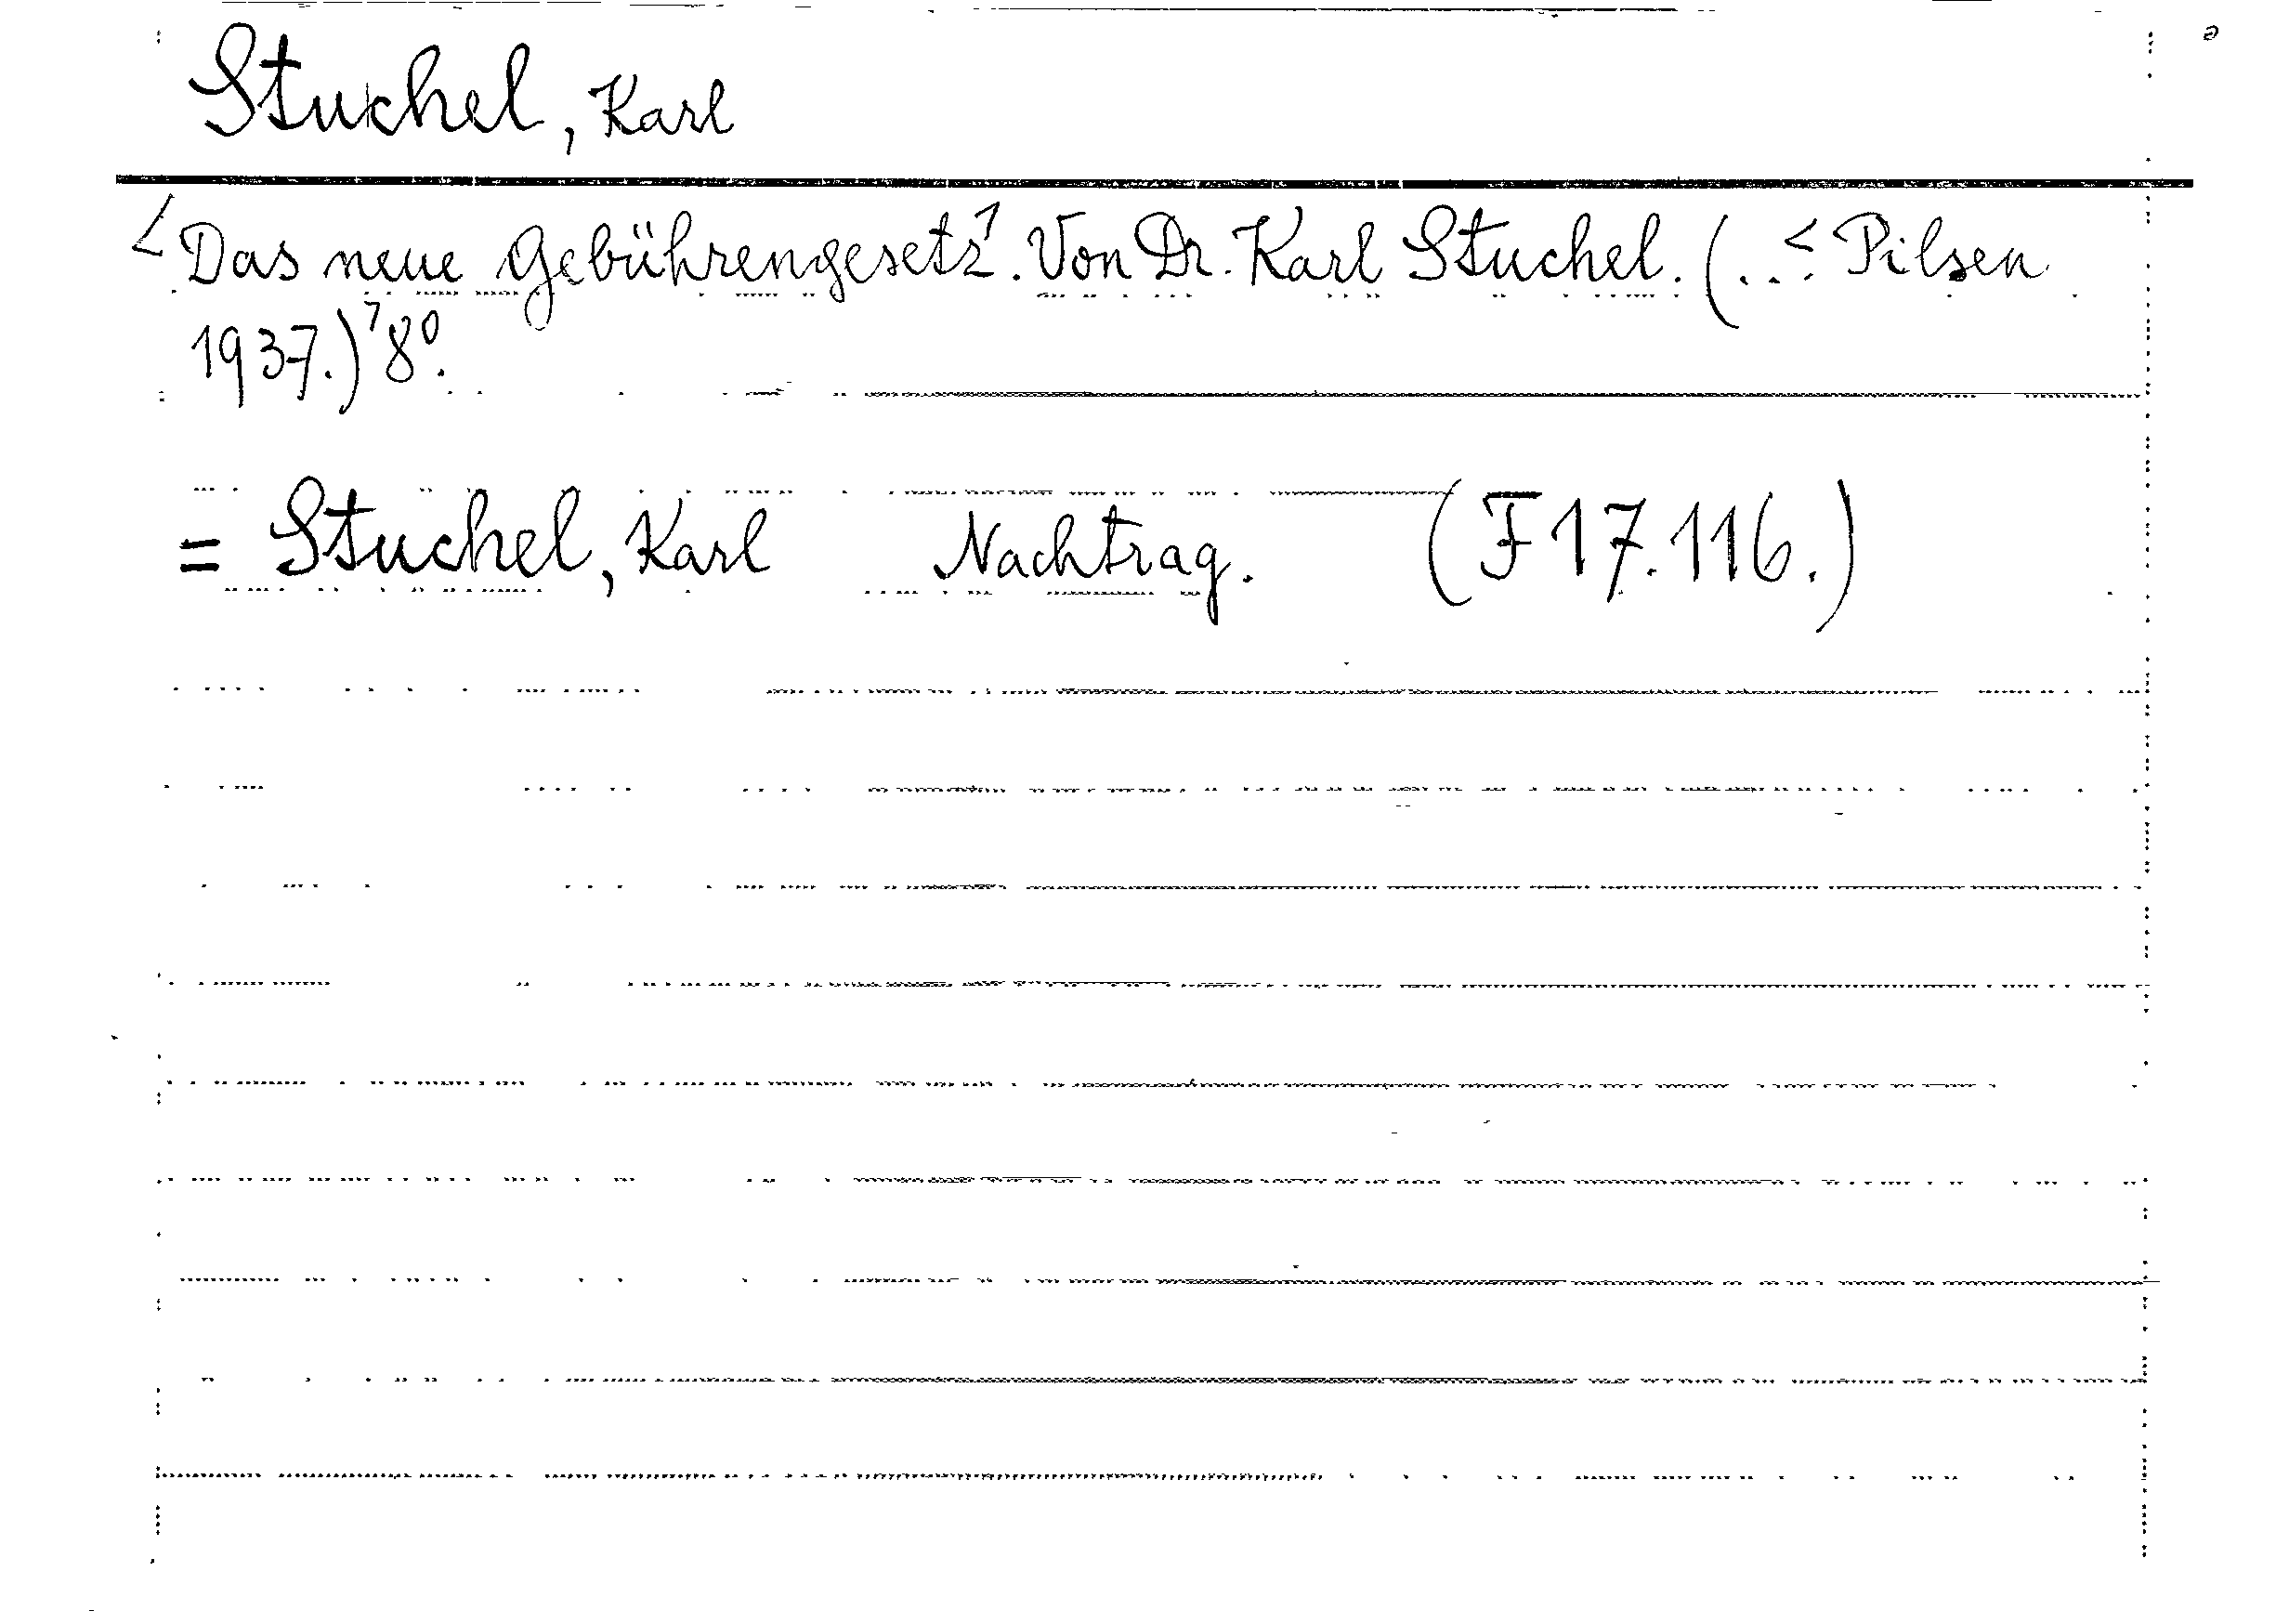 Stuchel, Karl
<Das neue Gebührengesetz¹. Von Dr. Karl Stuchel. (..< Pilsen
1937.)⁷ 8⁰.
= Stuchel, Karl Nachtrag. (F 17.116.)